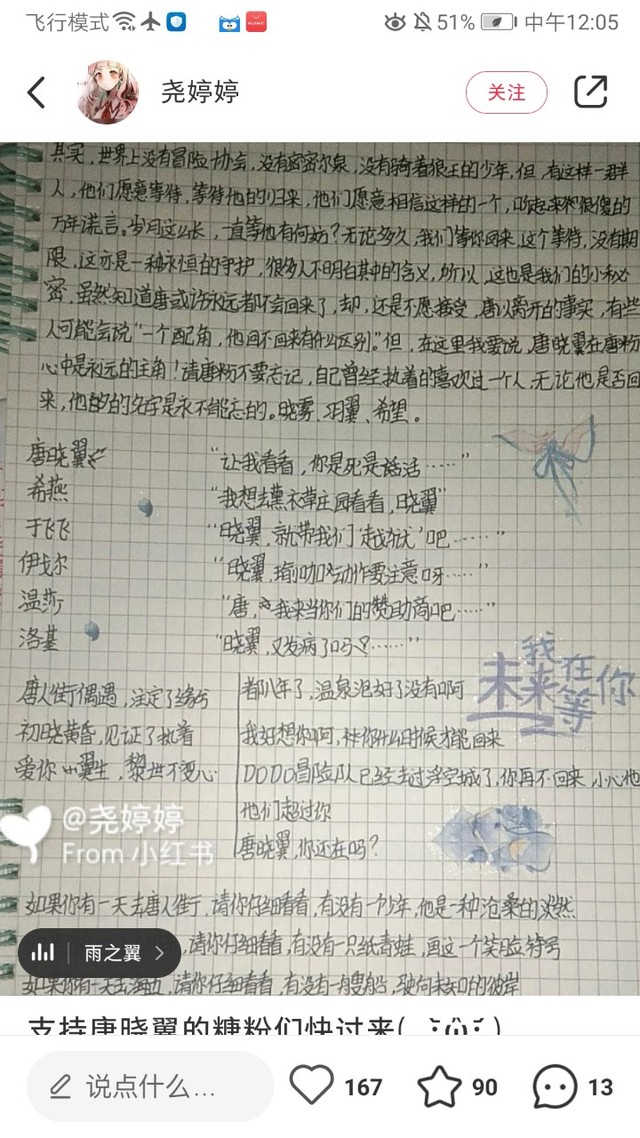 飞行模式 51% 中午12:05
尧婷婷 关注
其实，世界上没有冒险协会，没有密密尔泉，没有骑着狼王的少年，但，有这样一群
人，他们愿意等待，等待他的归来，他们愿意相信这样的一个，听起来很傻的
万年谎言。岁月这么长，一直等他有何妨？无论多久，我们等你回来，这个等待，没有期
限，这亦是一种永恒的守护，很多人不明白其中的含义，所以，这也是我们的小秘
密，虽然知道唐或许永远都不会回来了，却，还是不愿接受，唐以离开的事实，有些
人可能会说"一个配角，他回不回来有什么区别。"但，在这里我要说，唐晓翼在唐粉
心中是永远的主角！请唐粉不要忘记，自己曾经执着的喜欢过一个人，无论他是否回
来，他的名字是永不能忘的。晓雾、羽翼、希望。
唐晓翼 "让我看看，你是死是活……"
希燕 "我想去薰衣草庄园看看，晓翼"
于飞飞 "晓翼，就带我们'越狱'吧……"
伊戈尔 "晓翼，瑜咖动作要注意呀……"
温莎 "唐，我来当你们的赞助商吧……"
洛基 "晓翼，又发病了吗？……"
我在未来等你
唐人街偶遇，注定了缘分
初晓黄昏，见证了执着
爱你翼生，黎世不变心
都八年了，温泉泡好了没有啊
我好想你啊，你什么时候才能回来
DODO冒险队已经去过浮空城了，你再不回来，小心他
他们超过你
唐晓翼，你还在吗？
@尧婷婷
From 小红书
如果你有一天去唐人街，请你仔细看看，有没有一个少年，他是一种沧桑的淡然
雨之翼 ，请你仔细看看，有没有一只纸青蛙，画这一个笑脸符号
如果你有一天去海边，请你仔细看看，有没有一艘船，驶向未知的彼岸
支持唐晓翼的糖粉们快过来(
说点什么... 167 90 13